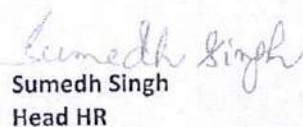 Sumedh Singh
Sumedh Singh
Head HR